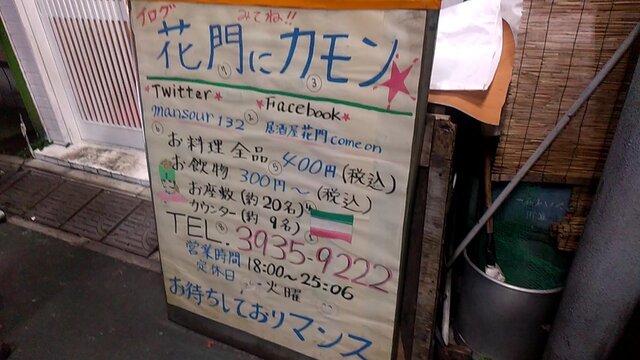 ブログ みてね!!
花門にカモン
Twitter Facebook
mansour132 居酒屋花門come on
お料理 全品 400円(税込)
お飲物 300円～(税込)
お座敷(約20名)
カウンター(約9名)
TEL. 3935-9222
営業時間 18:00～25:06
定休日 ---火曜
お待ちしておりマンス